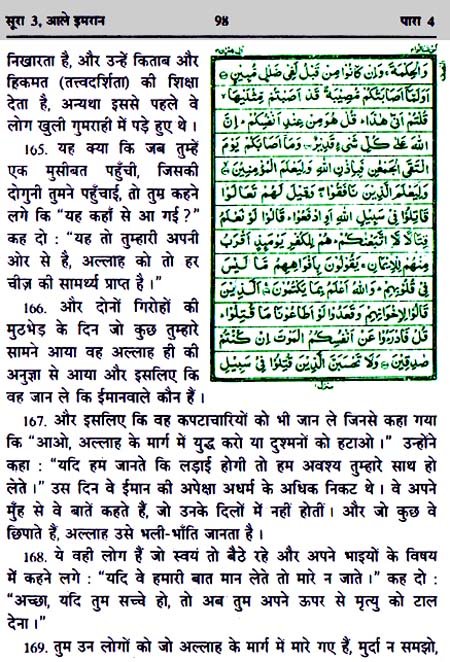 सूरा 3, आले इमरान 98 पारा 4
निखारता है, और उन्हें किताब और
हिकमत (तत्त्वदर्शिता) की शिक्षा
देता है, अन्यथा इससे पहले वे
लोग खुली गुमराही में पड़े हुए थे ।
165. यह क्या कि जब तुम्हें
एक मुसीबत पहुँची, जिसकी
दोगुनी तुमने पहुँचाई, तो तुम कहने
लगे कि “यह कहाँ से आ गई ?”
कह दो : “यह तो तुम्हारी अपनी
ओर से है, अल्लाह को तो हर
चीज़ की सामर्थ्य प्राप्त है ।”
166. और दोनों गिरोहों की
मुठभेड़ के दिन जो कुछ तुम्हारे
सामने आया वह अल्लाह ही की
अनुज्ञा से आया और इसलिए कि
वह जान ले कि ईमानवाले कौन हैं ।
وَالْحِكْمَةَ وَإِنْ كَانُوا مِنْ قَبْلُ لَفِي ضَلَلٍ مُّبِينٍ
اَوَلَمَّا اَصَابَتْكُمْ مُّصِيبَةٌ قَدْ اَصَبْتُمْ مِّثْلَيْهَا
قُلْتُمْ اَنّٰى هٰذَا قُلْ هُوَ مِنْ عِنْدِ اَنْفُسِكُمْ اِنَّ
اللّٰهَ عَلٰى كُلِّ شَىْءٍ قَدِيْرٌ وَمَا اَصَابَكُمْ يَوْمَ
الْتَقَى الْجَمْعٰنِ فَبِاِذْنِ اللّٰهِ وَلِيَعْلَمَ الْمُؤْمِنِيْنَ
وَلِيَعْلَمَ الَّذِيْنَ نَافَقُوْا وَقِيْلَ لَهُمْ تَعَالَوْا
قَاتِلُوْا فِىْ سَبِيْلِ اللّٰهِ اَوِ ادْفَعُوْا قَالُوْا لَوْ نَعْلَمُ
قِتَالًا لَّا اتَّبَعْنٰكُمْ هُمْ لِلْكُفْرِ يَوْمَئِذٍ اَقْرَبُ
مِنْهُمْ لِلْاِيْمَانِ يَقُوْلُوْنَ بِاَفْوَاهِهِمْ مَّا لَيْسَ
فِىْ قُلُوْبِهِمْ وَاللّٰهُ اَعْلَمُ بِمَا يَكْتُمُوْنَ اَلَّذِيْنَ
قَالُوْا لِاِخْوَانِهِمْ وَقَعَدُوْا لَوْ اَطَاعُوْنَا مَا قُتِلُوْا
قُلْ فَادْرَءُوْا عَنْ اَنْفُسِكُمُ الْمَوْتَ اِنْ كُنْتُمْ
صٰدِقِيْنَ وَلَا تَحْسَبَنَّ الَّذِيْنَ قُتِلُوْا فِىْ سَبِيْلِ
167. और इसलिए कि वह कपटाचारियों को भी जान ले जिनसे कहा गया
कि “आओ, अल्लाह के मार्ग में युद्ध करो या दुश्मनों को हटाओ ।” उन्होंने
कहा : “यदि हम जानते कि लड़ाई होगी तो हम अवश्य तुम्हारे साथ हो
लेते ।” उस दिन वे ईमान की अपेक्षा अधर्म के अधिक निकट थे । वे अपने
मुँह से वे बातें कहते हैं, जो उनके दिलों में नहीं होतीं । और जो कुछ वे
छिपाते हैं, अल्लाह उसे भली-भाँति जानता है ।
168. ये वही लोग हैं जो स्वयं तो बैठे रहे और अपने भाइयों के विषय
में कहने लगे : “यदि वे हमारी बात मान लेते तो मारे न जाते ।” कह दो :
“अच्छा, यदि तुम सच्चे हो, तो अब तुम अपने ऊपर से मृत्यु को टाल
देना ।”
169. तुम उन लोगों को जो अल्लाह के मार्ग में मारे गए हैं, मुर्दा न समझो,